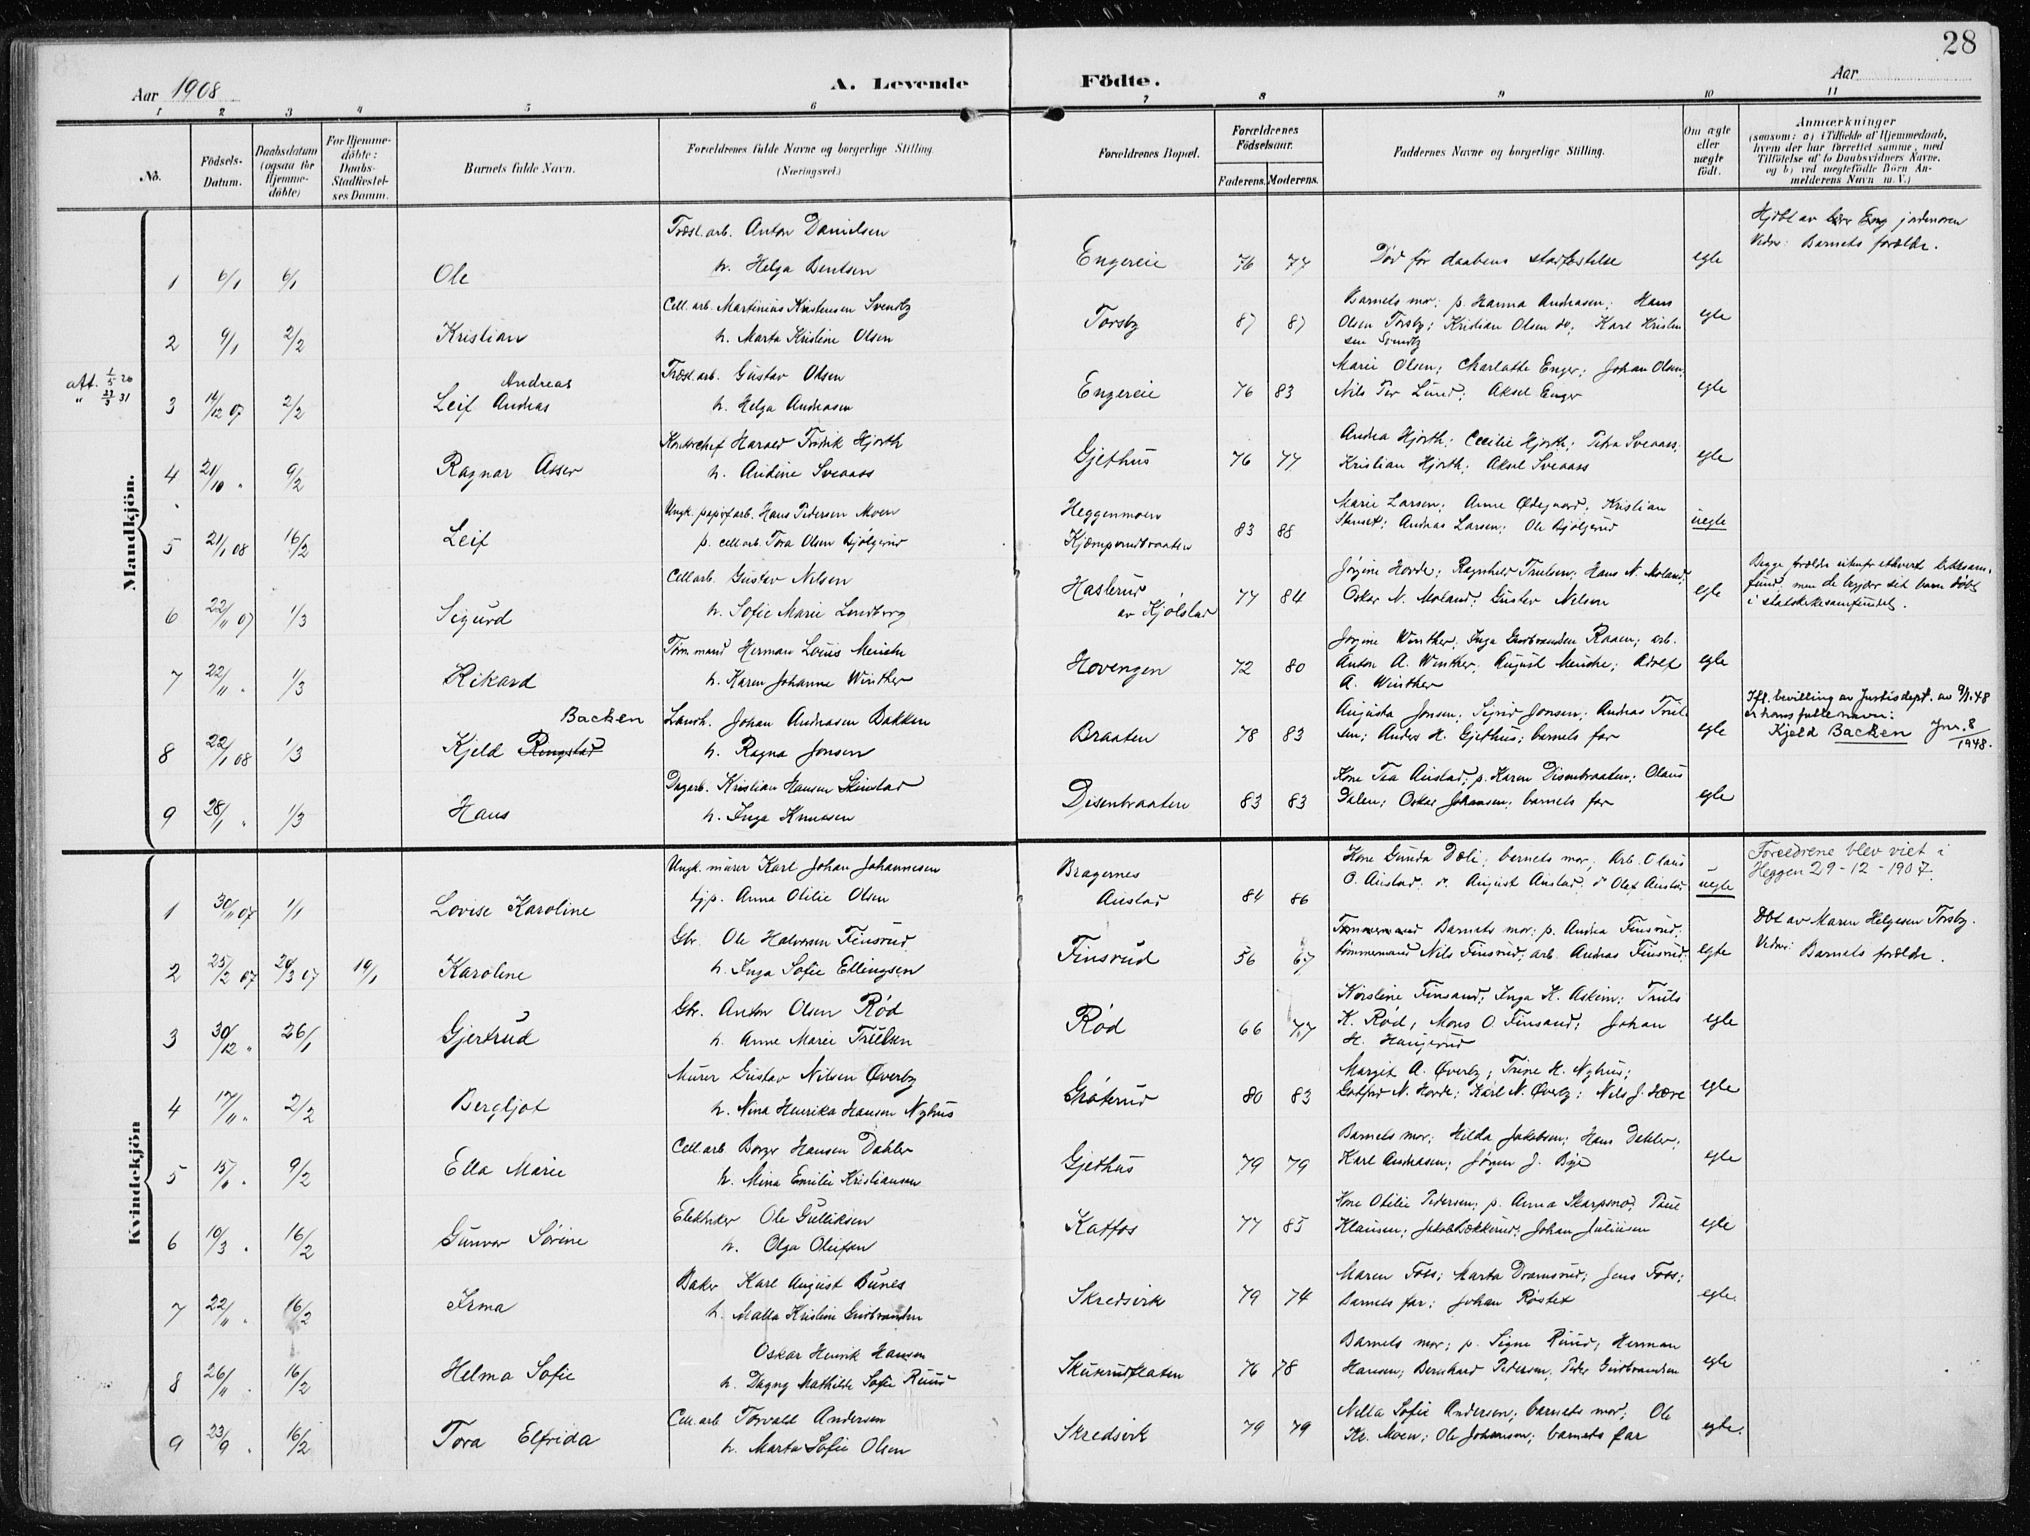 28
Aar 1908
A. Levende Födte.
Aar
1 2 3 4 5 6 7 8 9 10 11
No.
Födsels-Datum.
Daabsdatum (ogsaa for Hjemme-döbte)
For Hjemme-döbte: Daabs-Stadfæstel-ses Datum.
Barnets fulde Navn.
Forældrenes fulde Navne og borgerlige Stilling.
(Næringsvei.)
Forældrenes Bopæl.
Forældrenes Födselsaar.
Faderens. Moderens.
Faddernes Navne og borgerlige Stilling.
Om ægte eller uægte födt.
Anmærkninger
(saasom: a) i Tilfælde af Hjemmedaab,
hvem der har forrettet samme, med
Tilföielse af to Daabsvidners Navne.
og b) ved uegtefödte Börn An-
melderens Navn m. V.)
Mandkjön.
Træsl.arb. Anton Danielsen
1 6/1 6/1 Ole h. Helga Bentsen Engereie 76 77 Död før daabens stadfæstelse egte
Hjdbt av Eng jordmoren
Vidner: Barnets forældre.
Cell. arb. Martinius Kristensen Svendby
2 9/1 2/2 Kristian h. Marta Kristine Olsen Torsby 87 87 egte
Barnets mor; p. Hanna Andreasen; Hans
Olsen Torsby; Kristian Olsen do; Karl Kristen
sen Svendby
att. 1/5 26
" 27/3 31
Træsl. arb. Gustav Olsen
Andreas
3 14/12 07 2/2 Leif Andreas h. Helga Andreasen Engereie 76 83 egte
Marie Olsen; Charlotte Enger; Johan Olsen;
Nils Per Lund; Aksel Enger
Kontorchef Harald Fredrik Hjorth
4 21/10 " 9/2 Ragnar Asser h. Andine Sveaass Gjethus 76 77 egte
Andrea Hjorth; Cecilie Hjorth; Petra Sveaass;
Kristian Hjorth; Aksel Sveaass
Ungk. papirfarb. Hans Pedersen Moen
5 21/1 08 16/2 Leif p. cell. arb. Tora Olsen Bjölgerud
Heggenmoen
Kjæmperudbraaten 83 88 uegte
Marie Larsen; Anne Ødegaard; Kristian
Andreas Larsen; Ole Bjölgerud
Cell arb. Gustav Nilsen
6 22/11 07 1/3 Sigurd h. Sofie Marie Lundborg
Haslerud
av Kjölstad 77 84 egte
Jørgine Horde; Ragnhild Trulsen; Hans N. Moland;
Oskar N. Moland; Gustav Nilsen
Begge forældre utenfor ethvert trossam-
fund, men de begjær sit barn döbt
i statskirkesamfundet.
Tömmermand Herman Louis Meinche
7 22/11 " 1/3 Rikard h. Karen Johanne Winther Hovengen 72 80 egte
Jørgine Winther; Inga Gudbrandsen Raaen; arb.
Anton A. Winther; August Meinche; Adolf
A. Winther
Backen
8 22/1 08 1/3 Kjeld Ringstad
Landh. Johan Andreasen Bakken
h. Ragna Jonsen Braaten 78 83 egte
Augusta Jonsen; Sigrid Jonsen; Andreas Trul-
sen; Anders H. Gjethus; barnets far
Ifl. bevilling av Justisdept. av 9/1.48
er hans fulle navn:
Kjeld Backen Jnr. 8/1948.
Dagarb. Kristian Hansen
9 28/1 " 1/3 Hans h. Inga Knudsen Disenbraaten 83 83 egte
Kone Tea Austad; p. Karen Disenbraaten; Olaus
Dalen; Oskar Johansen; barnets far
Kvindekjön
Ungk. murer Karl Johan Johannesen
1 30/11 07 1/1 Lovise Karoline tjp. Anna Otilie Olsen
Bragernes
Austad 84 86 uegte
Kone Gunda Dæli; barnets mor; Arb. Olaus
O. Austad; d. August Austad; d Olaf Austad
Forældrene blev viet i
Heggen 29-12-1907.
Gbr. Ole Halvorsen Finsrud
2 25/2 07 29/3 07 19/1 Karoline h. Inga Sofie Ellingsen Finsrud 56 67 egte
Tommermand Barnets mor; p. Andrea Finsrud;
tömmermand Nils Finsrud; arb. Andreas Finsrud.
Dbt av Maren Helgesen Torsby.
Vidner: Barnets forældre.
Gbr. Anton Olsen Rød
3 30/12 " 26/1 Gjertrud h. Anne Marie Trulsen Rød 66 77 egte
Finsand; Inga K. Askim; Truls
K. Rød; Mons O. Finsand; Johan
H. Haugerud
Murer Gustav Nilsen Øverby
4 17/11 " 2/2 Bergljot h. Nina Henrika Hansen Nyhus Gröterud 80 83 egte
Margit A. Øverby; Trine H. Nyhus;
N. Horde; Karl N. Øverby; Nils J. Hære
Cell. arb Borger Hansen Dahler
5 15/6 " 9/2 Ella Marie h. Mina Emilie Kristiansen Gjethus 79 79 egte
Barnets mor; Hilda Jakobsen; Hans Dahler;
Karl Andreasen; Jørgen J. Bye
Elektriker Ole Gulliksen
6 10/3 " 16/2 Gunvor Sörine h. Olga Olufsen Katfos 77 85 egte
Kone Otilie Pedersen; p. Anna Skarpsno; Paul
Klausen; Johan Juliusen
Baker Karl August Bunes
7 22/11 " 16/2 Irma h. Malla Kristine Gudbrandsen Skredsvik 79 74 egte.
Maren Foss; Marta Dramsrud; Jens Foss;
Barnets far; Johan Röstet
Oskar Henrik Hansen
8 26/11 " 16/2 Helma Sofie h. Dagny Mathilde Sofie Ruud Skuterudflaten 76 78 egte
Barnets mor; p. Signe Ruud; Herman
Hansen; Bernhard Pedersen; Peder Gudbrandsen
Cell. arb Torvald Andersen
9 23/9 " 16/2 Tora Elfrida h. Marta Sofie Olsen Skredsvik 79 79 egte.
Nella Sofie Andersen; barnets mor; Ole
Kr. Moen; Ole Johansen; barnets far